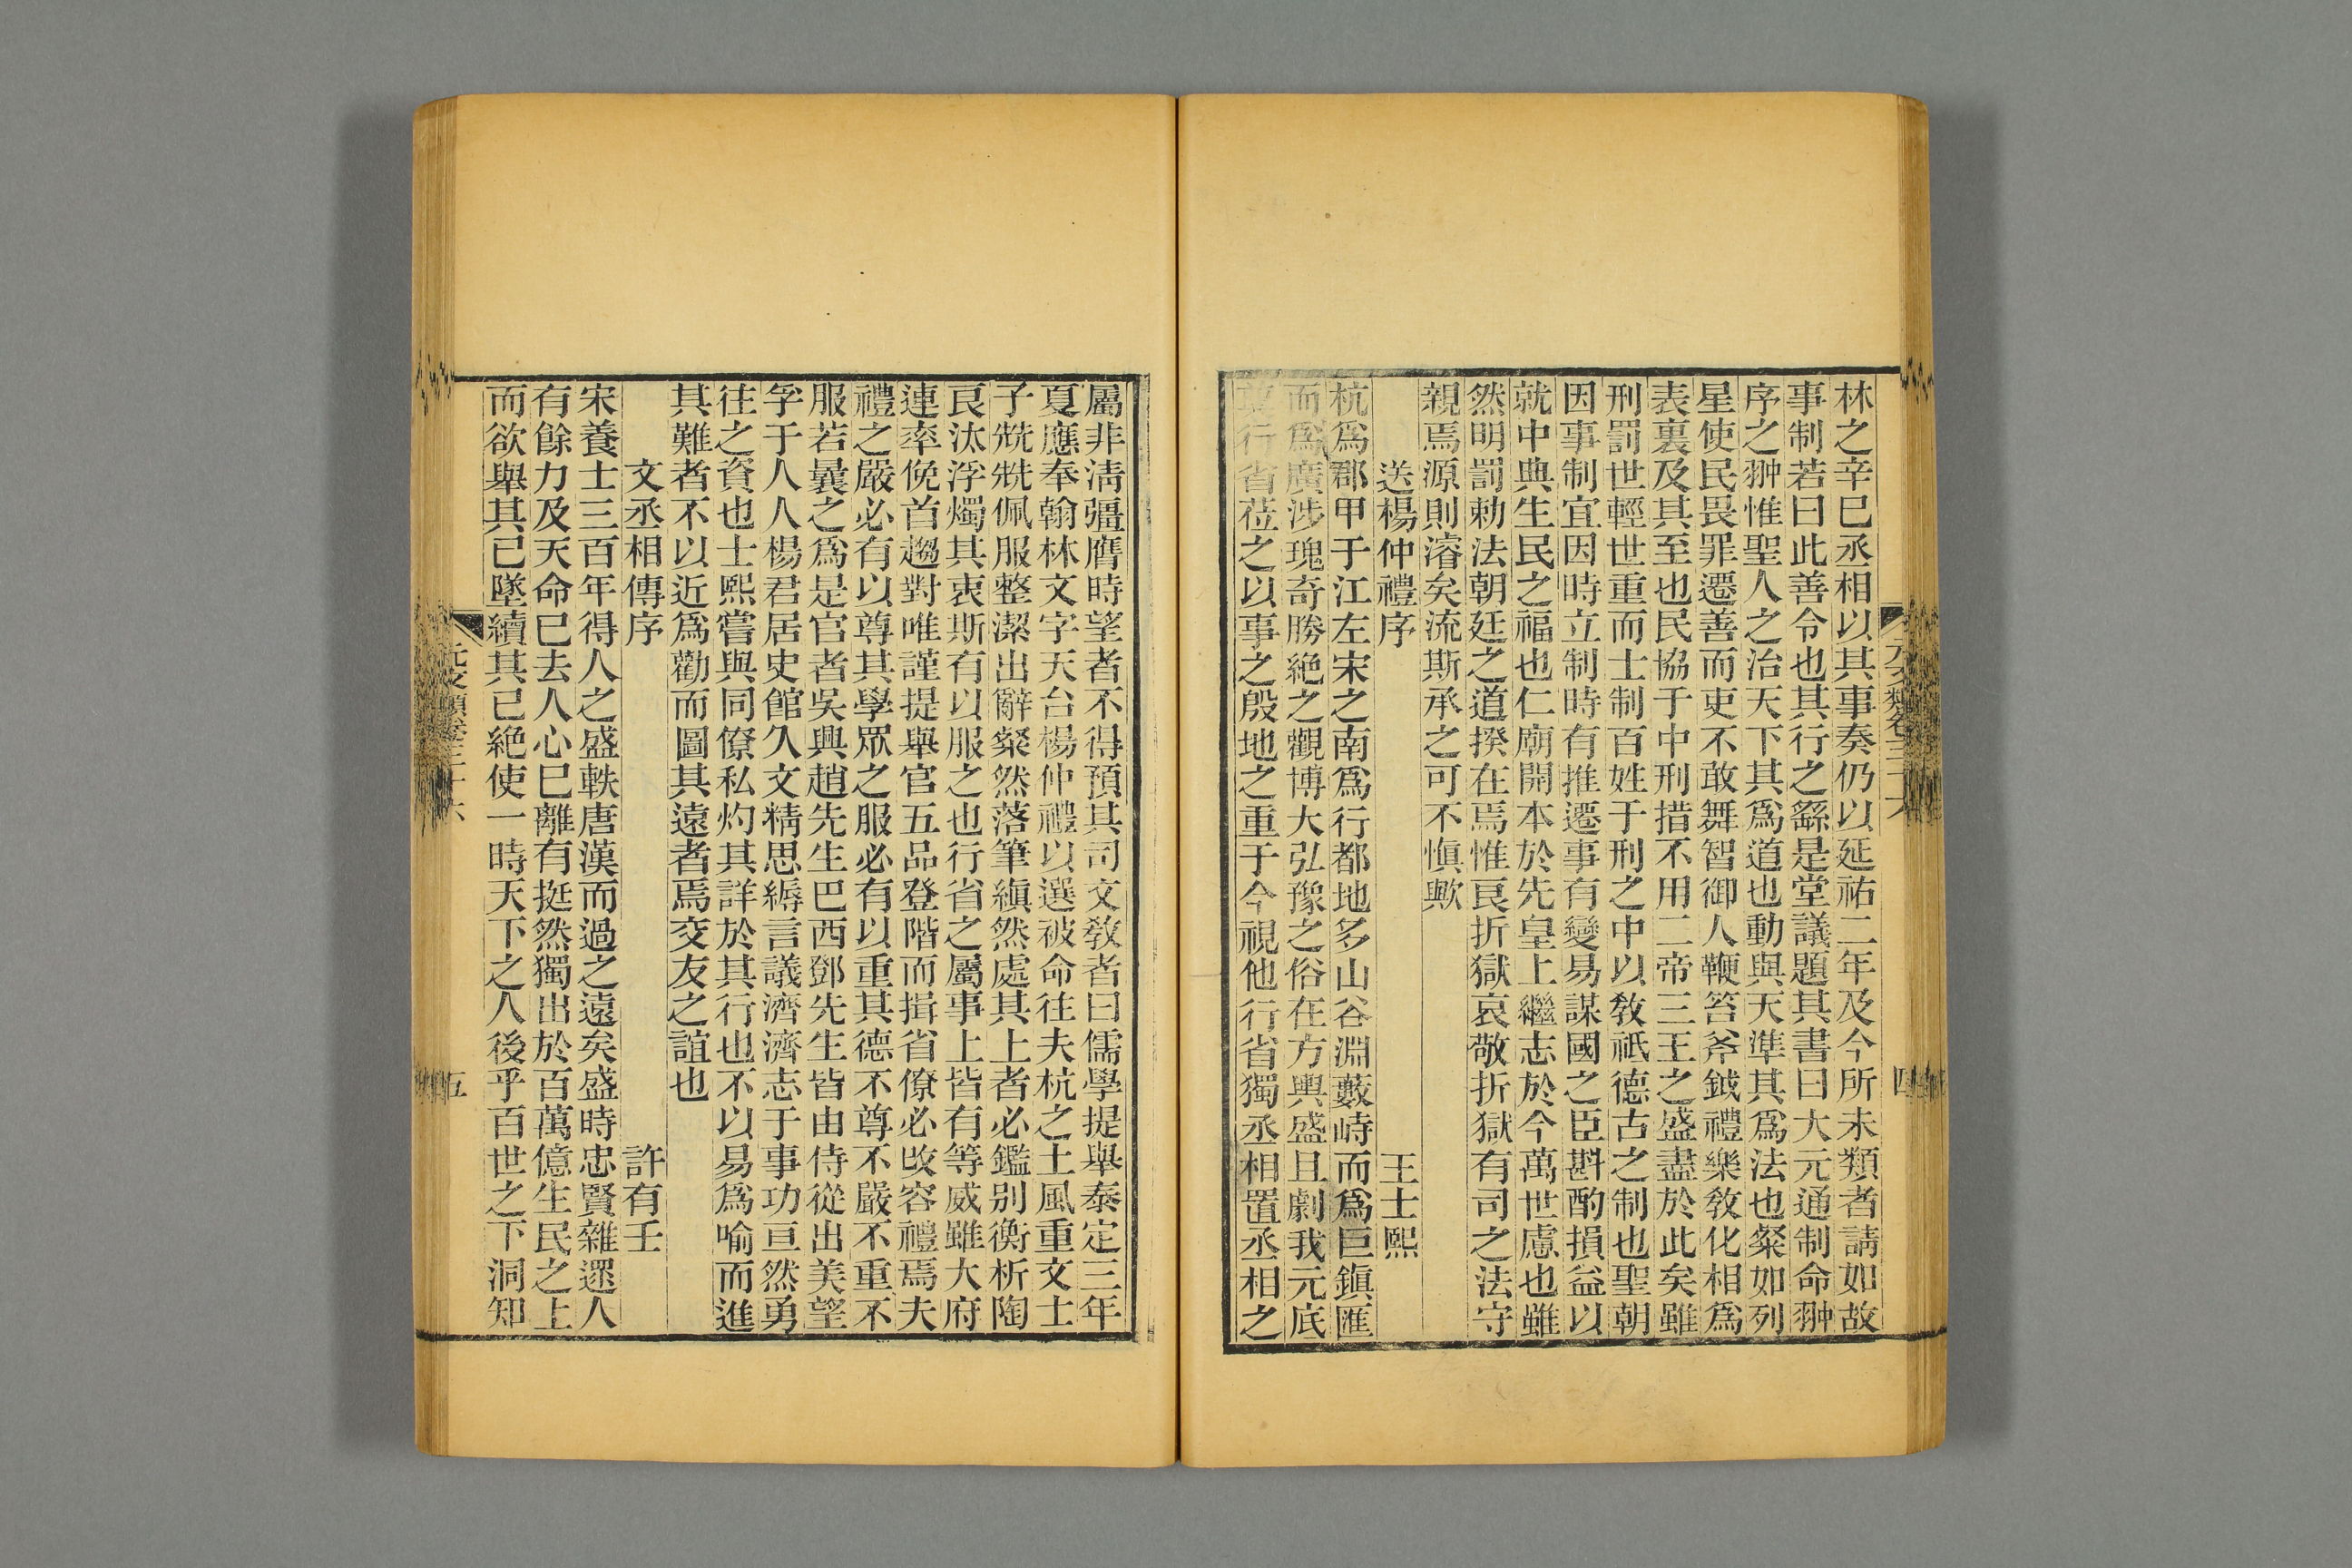 元文類卷三十六
四
林之辛巳丞相以其事奏仍以延祐二年及今所未類者請如故
事制若曰此善令也其行之繇是堂議題其書曰大元通制命翀
序之翀惟聖人之治天下其爲道也動與天準其爲法也粲如列
星使民畏罪遷善而吏不敢舞智御人鞭笞斧鉞禮樂敎化相爲
表裏及其至也民協于中刑措不用二帝三王之盛盡於此矣雖
刑罰世輕世重而士制百姓于刑之中以敎祇德古之制也聖朝
因事制宜因時立制時有推遷事有變易謀國之臣斟酌損益以
就中典生民之福也仁廟開本於先皇上繼志於今萬世慮也雖
然明罰勅法朝廷之道揆在焉惟良折獄哀敬折獄有司之法守
親焉源則濬矣流斯承之可不愼歟
送楊仲禮序 王士熙
杭爲郡甲于江左宋之南爲行都地多山谷淵藪峙而爲巨鎭匯
而爲廣涉瑰奇勝絶之觀博大弘豫之俗在方輿盛且劇我元底
行省莅之以事之殷地之重于今視他行省獨丞相置丞相之
屬非淸彊膺時望者不得預其司文敎者曰儒學提舉泰定三年
夏應奉翰林文字天台楊仲禮以選被命往夫杭之土風重文士
子兟兟佩服整潔出辭粲然落筆縝然處其上者必鑑别衡析陶
良汰浮燭其衷斯有以服之也行省之屬事上皆有等威雖大府
連率俛首趨對唯謹提舉官五品登階而揖省僚必改容禮焉夫
禮之嚴必有以尊其學眾之服必有以重其德不尊不嚴不重不
服若曩之爲是官者吳興趙先生巴西鄧先生皆由侍從出美望
孚于人人楊君居史館久文精思縟言議濟濟志于事功亘然勇
往之資也士熙嘗與同僚私灼其詳於其行也不以易爲喻而進
其難者不以近爲勸而圖其遠者焉交友之誼也
文丞相傳序 許有壬
宋養士三百年得人之盛軼唐漢而過之遠矣盛時忠賢雜遝人
有餘力及天命已去人心已離有挺然獨出於百萬億生民之上
而欲舉其已墜續其已絶使一時天下之人後乎百世之下洞知
元文類卷三十六
五